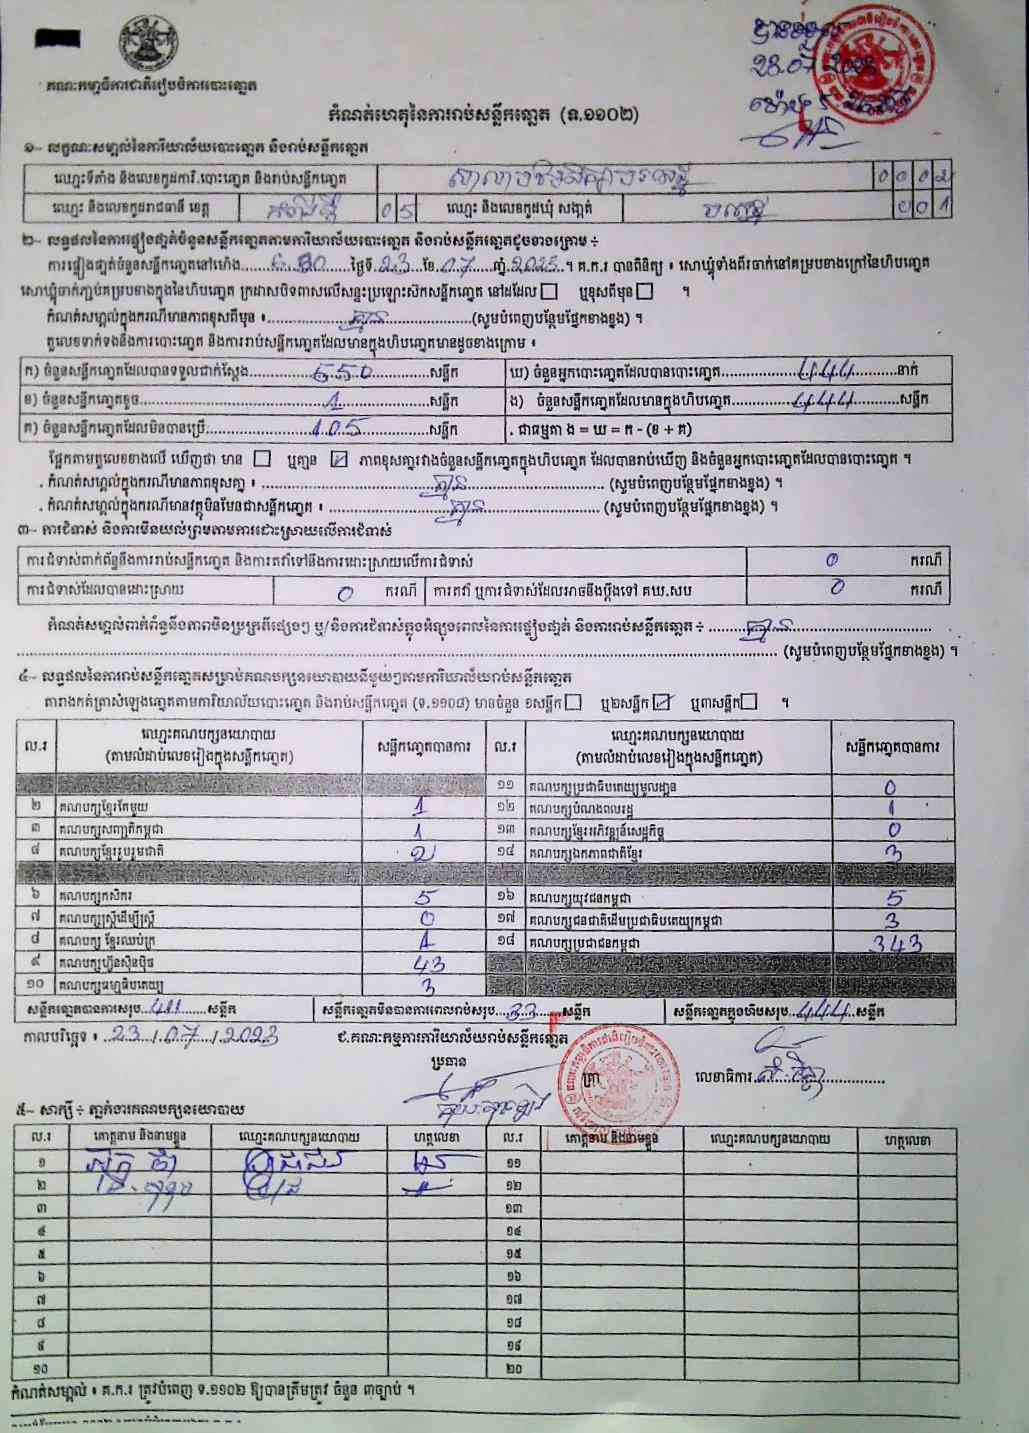 គណៈកម្មាធិការជាតិរៀបចំការបោះឆ្នោត
កំណត់ហេតុនៃការរាប់សន្លឹកឆ្នោត (ទ.១១០២)
១- លក្ខណៈសម្គាល់នៃការិយាល័យបោះឆ្នោត និងរាប់សន្លឹកឆ្នោត
ឈ្មោះទីតាំង និងលេខកូដការិ.បោះឆ្នោត និងរាប់សន្លឹកឆ្នោត 0 0 0 2
ឈ្មោះ និងលេខកូដរាជធានី ខេត្ត 0 5 ឈ្មោះ និងលេខកូដឃុំ សង្កាត់ 0 0 1
២- លទ្ធផលនៃការផ្ទៀងផ្ទាត់ចំនួនសន្លឹកឆ្នោតតាមការិយាល័យបោះឆ្នោត និងរាប់សន្លឹកឆ្នោតដូចខាងក្រោម ÷
ការផ្ទៀងផ្ទាត់ចំនួនសន្លឹកឆ្នោតនៅម៉ោង ថ្ងៃទី 23 ខែ 07 ឆ្នាំ ។ គ.ក.រ បានពិនិត្យ ៖ សោឃ្មុំទាំងពីរចាក់នៅគម្របខាងក្រៅនៃហិបឆ្នោត
សោឃ្មុំចាក់ភ្ជាប់គម្របខាងក្នុងនៃហិបឆ្នោត ក្រដាសបិទពាសលើសន្ទះប្រឡោះស៊កសន្លឹកឆ្នោត នៅដដែល ឬខុសពីមុន ។
កំណត់សម្គាល់ក្នុងករណីមានភាពខុសពីមុន ៖ គ្មាន (សូមបំពេញបន្ថែមផ្នែកខាងខ្នង) ។
តួលេខទាក់ទងនឹងការបោះឆ្នោត និងការរាប់សន្លឹកឆ្នោតដែលមានក្នុងហិបឆ្នោតមានដូចខាងក្រោម ៖
ក) ចំនួនសន្លឹកឆ្នោតដែលបានទទួលជាក់ស្តែង 550 សន្លឹក ឃ) ចំនួនអ្នកបោះឆ្នោតដែលបានបោះឆ្នោត 444 នាក់
ខ) ចំនួនសន្លឹកឆ្នោតខូច 1 សន្លឹក ង) ចំនួនសន្លឹកឆ្នោតដែលមានក្នុងហិបឆ្នោត 444 សន្លឹក
គ) ចំនួនសន្លឹកឆ្នោតដែលមិនបានប្រើ 105 សន្លឹក . ជាធម្មតា ង = ឃ = ក - (ខ + គ)
ផ្អែកតាមតួលេខខាងលើ ឃើញថា មាន ឬគ្មាន ✓ ភាពខុសគ្នារវាងចំនួនសន្លឹកឆ្នោតក្នុងហិបឆ្នោត ដែលបានរាប់ឃើញ និងចំនួនអ្នកបោះឆ្នោតដែលបានបោះឆ្នោត ។
. កំណត់សម្គាល់ក្នុងករណីមានភាពខុសគ្នា ៖ គ្មាន (សូមបំពេញបន្ថែមផ្នែកខាងខ្នង) ។
. កំណត់សម្គាល់ក្នុងករណីមានវត្ថុមិនមែនជាសន្លឹកឆ្នោត ៖ គ្មាន (សូមបំពេញបន្ថែមផ្នែកខាងខ្នង) ។
៣- ការជំទាស់ និងការមិនយល់ព្រមតាមការដោះស្រាយលើការជំទាស់
ការជំទាស់ពាក់ព័ន្ធនឹងការរាប់សន្លឹកឆ្នោត និងការតវ៉ាទៅនឹងការដោះស្រាយលើការជំទាស់ 0 ករណី
ការជំទាស់ដែលបានដោះស្រាយ 0 ករណី ការតវ៉ា ឬការជំទាស់ដែលអាចនឹងប្តឹងទៅ គឃ.សប 0 ករណី
កំណត់សម្គាល់ពាក់ព័ន្ធនឹងភាពមិនប្រក្រតីផ្សេងៗ ឬ/និងការជំទាស់ក្នុងអំឡុងពេលនៃការផ្ទៀងផ្ទាត់ និងការរាប់សន្លឹកឆ្នោត ÷ គ្មាន
(សូមបំពេញបន្ថែមផ្នែកខាងខ្នង) ។
៤- លទ្ធផលនៃការរាប់សន្លឹកឆ្នោតសម្រាប់គណបក្សនយោបាយនីមួយៗតាមការិយាល័យរាប់សន្លឹកឆ្នោត
តារាងកត់ត្រាសំឡេងឆ្នោតតាមការិយាល័យបោះឆ្នោត និងរាប់សន្លឹកឆ្នោត (ទ.១១០៨) មានចំនួន ១សន្លឹក ឬ២សន្លឹក ✓ ឬ៣សន្លឹក ។
ល.រ ឈ្មោះគណបក្សនយោបាយ (តាមលំដាប់លេខរៀងក្នុងសន្លឹកឆ្នោត) សន្លឹកឆ្នោតបានការ ល.រ ឈ្មោះគណបក្សនយោបាយ (តាមលំដាប់លេខរៀងក្នុងសន្លឹកឆ្នោត) សន្លឹកឆ្នោតបានការ
១១ គណបក្សប្រជាធិបតេយ្យមូលដ្ឋាន 0
២ គណបក្សខ្មែរតែមួយ 1 ១២ គណបក្សបំណងពលរដ្ឋ 1
៣ គណបក្សសញ្ជាតិកម្ពុជា 1 ១៣ គណបក្សខ្មែរអភិវឌ្ឍន៍សេដ្ឋកិច្ច 0
៤ គណបក្សខ្មែររួបរួមជាតិ 2 ១៤ គណបក្សឯកភាពជាតិខ្មែរ 3
៦ គណបក្សកសិករ 5 ១៦ គណបក្សយុវជនកម្ពុជា 5
៧ គណបក្សស្ត្រីដើម្បីស្ត្រី 0 ១៧ គណបក្សជនជាតិដើមប្រជាធិបតេយ្យកម្ពុជា 3
៨ គណបក្ស ខ្មែរឈប់ក្រ 1 ១៨ គណបក្សប្រជាជនកម្ពុជា 343
៩ គណបក្សហ្វ៊ុនស៊ិនប៉ិច 43
១០ គណបក្សធម្មាធិបតេយ្យ 3
សន្លឹកឆ្នោតបានការសរុប 411 សន្លឹក សន្លឹកឆ្នោតមិនបានការពេលរាប់សរុប 33 សន្លឹក សន្លឹកឆ្នោតក្នុងហិបសរុប 444 សន្លឹក
កាលបរិច្ឆេទ ៖ 23/07/2023 ជ.គណៈកម្មការការិយាល័យរាប់សន្លឹកឆ្នោត
ប្រធាន
ត្រា លេខាធិការ
៥- សាក្សី ÷ ភ្នាក់ងារគណបក្សនយោបាយ
ល.រ គោត្តនាម និងនាមខ្លួន ឈ្មោះគណបក្សនយោបាយ ហត្ថលេខា ល.រ គោត្តនាម និងនាមខ្លួន ឈ្មោះគណបក្សនយោបាយ ហត្ថលេខា
១ ១១
២ ១២
៣ ១៣
៤ ១៤
៥ ១៥
៦ ១៦
៧ ១៧
៨ ១៨
៩ ១៩
១០ ២០
កំណត់សម្គាល់ ៖ គ.ក.រ ត្រូវបំពេញ ទ.១១០២ ឱ្យបានត្រឹមត្រូវ ចំនួន ៣ច្បាប់ ។